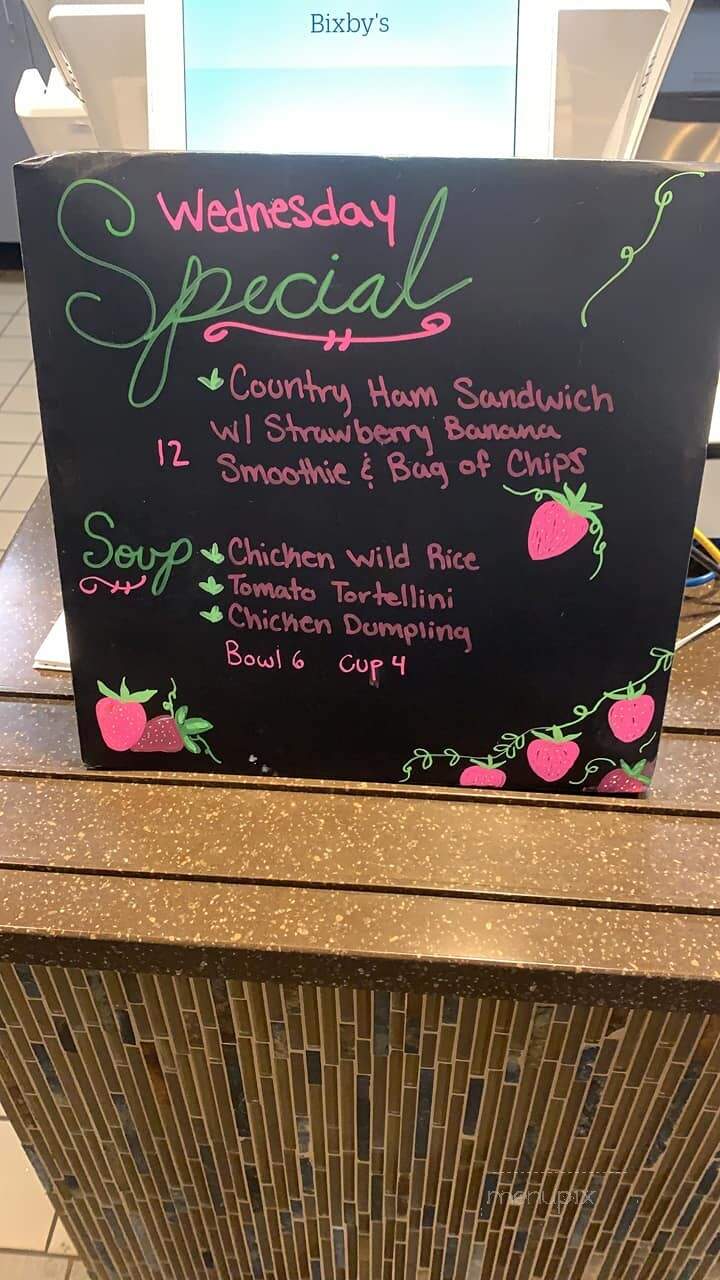 Bixby's
Wednesday
Special
Country Ham Sandwich
w/ Strawberry Banana
12 Smoothie & Bag of Chips
Soup Chicken Wild Rice
Tomato Tortellini
Chicken Dumpling
Bowl 6 Cup 4
menupix